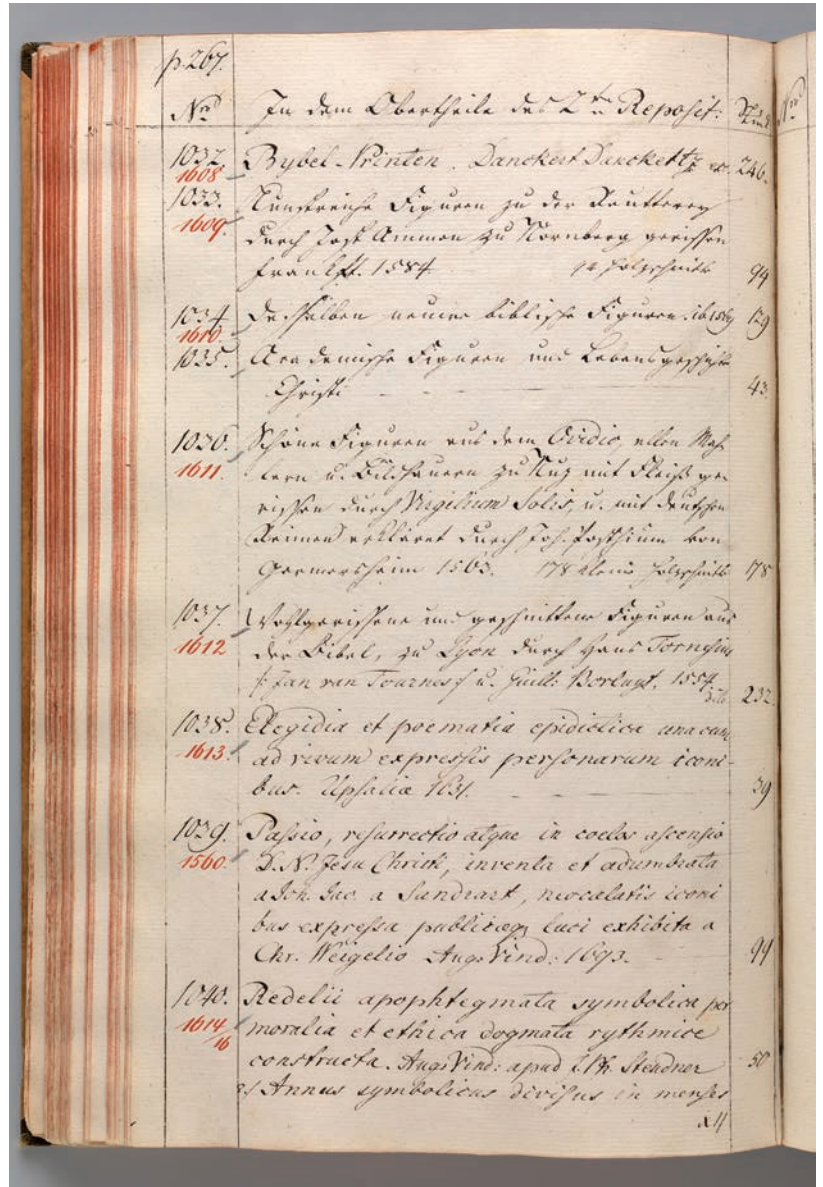 p. 267.
Nro In dem Obertheile des 2ten Reposit: Stück Nro
1032. Bybel-Printen. Danckert Danckerttz exc. 246.
1608
1033. Kunstreiche Figuren zu der Reutterey
1609. durch Jost Ammon zu Nornberg gerissen
Frankft. 1584 94 Holzschnitte 94
1034. Desselben neuwe biblische Figuren. ib. 129
1610.
1035. Academische Figuren und Lebensgeschichte
Christi 43.
1036. Schöne Figuren aus dem Ovidio, allen Mah-
1611. lern u. Bildhauern zu Nuz mit Fleiß ge-
rissen durch Virgilium Solis, u. mit deutschen
Reimen erkläret durch Joh. Posthium von
Germersheim 1563. 178 kleine Holzschnitte 178
1037. Wohlgerissene und geschnittene Figuren aus
1612 der Bibel, zu Lyon durch Hans Tornesium
/: Jan van Tournes :/ u. Guill: Borluyt. 1554
232.
1038. Elegidia et poematia epidictica una cum
1613. ad vivum expressis personarum iconi-
bus. Upsaliæ 1631. 39
1039. Passio, resurrectio atque in coelos ascensio
1560. D. N. Jesu Christi, inventa et adumbrata
a Joh. Jac. a Sandrart, neocælatis iconi
bus expressa publicæq luci exhibita a
Chr. Weigelio Aug. Vind: 1693. 99
1040. Redelii apophtegmata symbolica per
1614/16 moralia et ethica dogmata rythmice
constructa. Aug. Vind: apud I. Ph. Steudner 50
2./ Annus symbolicus divisus in menses
xII